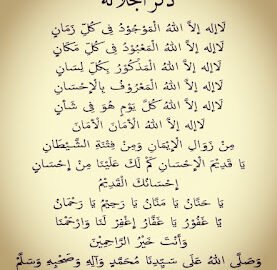 ذكر الجلالة
لَاإِلٰه إِلاَّ اللهُ الْمَوْجُوْدُ فِى كُلِّ زَمَانٍ
لَاإِلٰه إِلاَّ اللهُ الْمَعْبُوْدُ فِى كُلِّ مَكَانٍ
لَاإِلٰه إِلاَّ اللهُ الْمَذْكُوْرُ بِكُلِّ لِسَانٍ
لَاإِلٰه إِلاَّ اللهُ الْمَعْرُوْفُ بِالْإِحْسَانِ
لَاإِلٰه إِلاَّ اللهُ كُلَّ يَوْمٍ هُوَ فِى شَأْنٍ
لَاإِلٰه إِلاَّ اللهُ الْأَمَانَ الْأَمَانَ
مِنْ زَوَالِ الْإِيْمَانِ وَمِنْ فِتْنَةِ الشَّيْطَانِ
يَا قَدِيْمَ الْإِحْسَانِ كَمْ لَكَ عَلَيْنَا مِنْ إِحْسَانٍ
إِحْسَانُكَ الْقَدِيْمُ
يَا حَنَّانُ يَا مَنَّانُ يَا رَحِيْمُ يَا رَحْمَانُ
يَا غَفُوْرُ يَا غَفَّارُ إِغْفِرْ لَنَا وَارْحَمْنَا
وَأَنْتَ خَيْرُ الرَّاحِمِيْنَ
وَصَلَّى اللهُ عَلَى سَيِّدِنَا مُحَمَّدٍ وَآلِهِ وَصَحْبِهِ وَسَلَّمَ